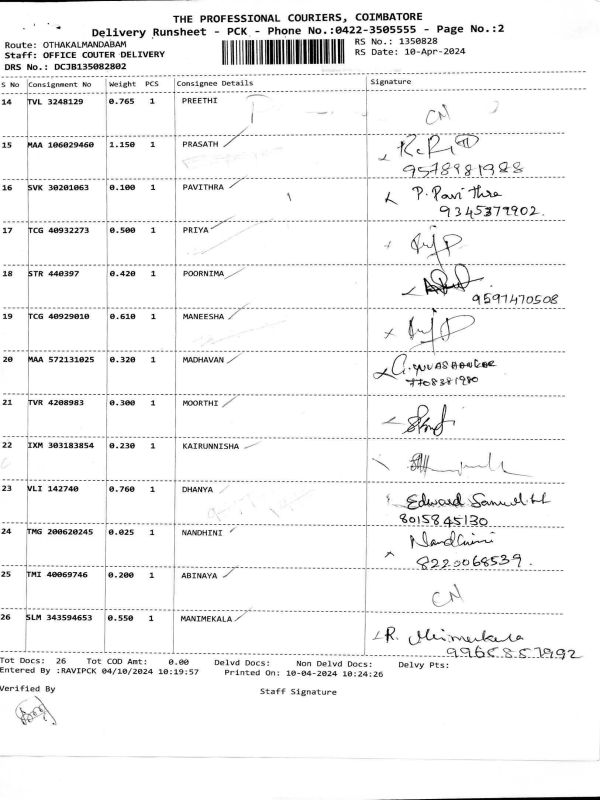 THE PROFESSIONAL COURIERS, COIMBATORE
Delivery Runsheet - PCK - Phone No.:0422-3505555 - Page No.:2
Route: OTHAKALMANDABAM
RS No.: 1350828
Staff: OFFICE COUTER DELIVERY
RS Date: 10-Apr-2024
DRS No.: DCJB135082802
S No Consignment No Weight PCS Consignee Details Signature
14 TVL 3248129 0.765 1 PREETHI CN
15 MAA 106029460 1.150 1 PRASATH
9578981988
16 SVK 30201063 0.100 1 PAVITHRA P. Pavithra
9345379902.
17 TCG 40932273 0.500 1 PRIYA
18 STR 440397 0.420 1 POORNIMA
9597470508
19 TCG 40929010 0.610 1 MANEESHA
20 MAA 572131025 0.320 1 MADHAVAN
7708381980
21 TVR 4208983 0.300 1 MOORTHI
22 IXM 303183854 0.230 1 KAIRUNNISHA
23 VLI 142740 0.760 1 DHANYA Edward Samuel
8015845130
24 TMG 200620245 0.025 1 NANDHINI Nandhini
8220068539.
25 TMI 40069746 0.200 1 ABINAYA CN
26 SLM 343594653 0.550 1 MANIMEKALA R.
Tot Docs: 26 Tot COD Amt: 0.00 Delvd Docs: Non Delvd Docs: Delvy Pts:
Entered By :RAVIPCK 04/10/2024 10:19:57 Printed On: 10-04-2024 10:24:26
Verified By Staff Signature